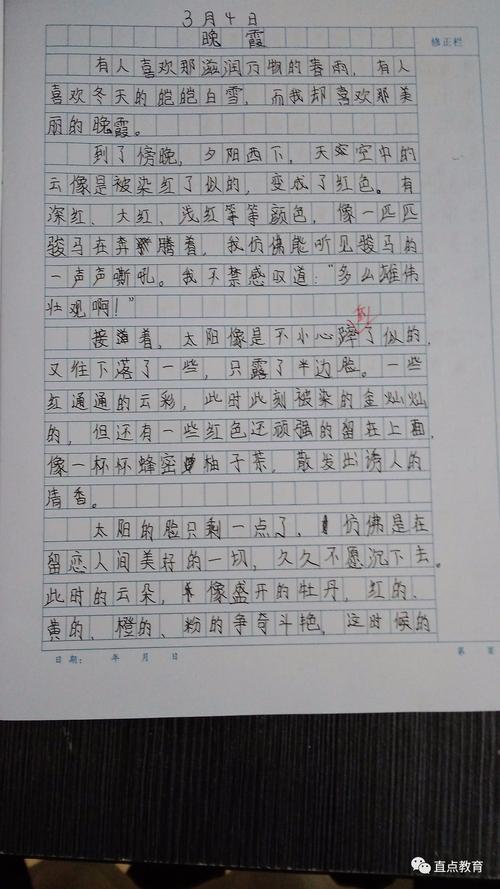 3月4日
晚霞
修正栏
有人喜欢那滋润万物的春雨，有人
喜欢冬天的皑皑白雪，而我却喜欢那美
丽的晚霞。
到了傍晚，夕阳西下，天空中的
云像是被染红了似的，变成了红色。有
深红、大红、浅红等等颜色，像一匹匹
骏马在奔腾着，我仿佛能听见骏马的
一声声嘶吼。我不禁感叹道："多么雄伟
壮观啊！"
接着，太阳像是不小心蹿了似的，
又往下落了一些，只露了半边脸。一些
红通通的云彩，此时此刻被染的金灿灿
的，但还有一些红色还顽强的留在上面，
像一杯杯蜂蜜柚子茶，散发出诱人的
清香。
太阳的脸只剩一点了，仿佛是在
留恋人间美好的一切，久久不愿沉下去。
此时的云朵，像盛开的牡丹，红的、
黄的、橙的、粉的争奇斗艳，这时候的
日期： 年 月 日
第 页
直点教育